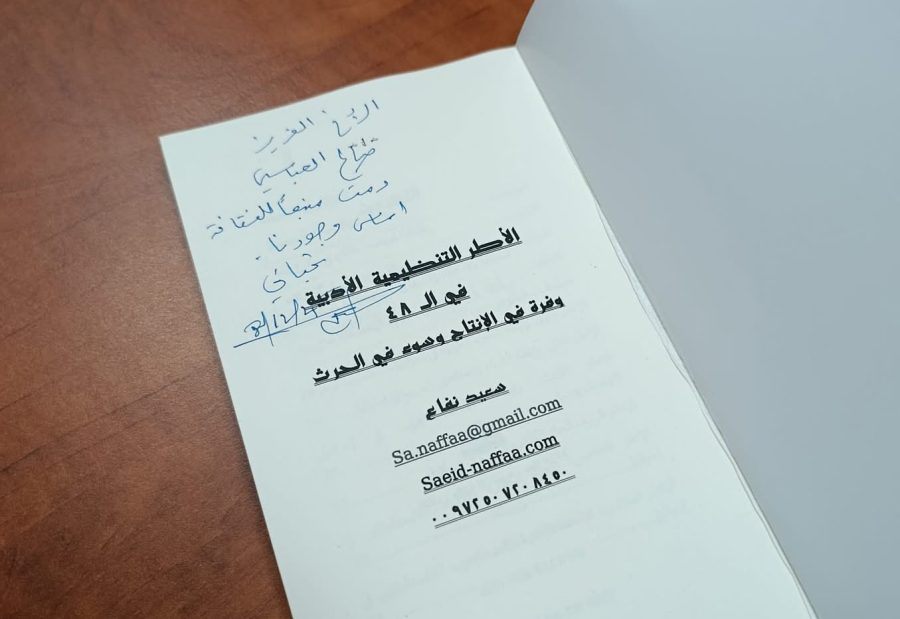 الأخ العزيز
صالح العباسي
دمت منبعاً للثقافة
اساس وجودنا.
تحياتي
8/12/
الأطر التنظيمية الأدبية
في الـ ٤٨
وفرة في الإنتاج وسوء في الحرث
سعيد نفاع
Sa.naffaa@gmail.com
Saeid-naffaa.com
٠٠٩٧٢٥٠٧٢٠٨٤٥٠